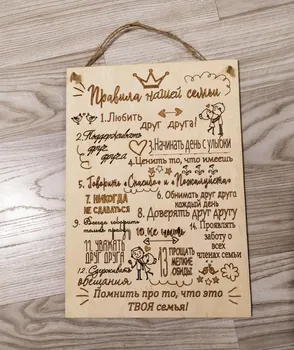 Правила нашей семьи
1. Любить
друг друга!
2. Поддерживать
друг
друга
3. Начинать день с улыбки
4. Ценить то, что имеешь
5. Говорить «Спасибо» и «Пожалуйста»
6. Обнимать друг друга
каждый день
7. НИКОГДА
НЕ СДАВАТЬСЯ
8. Доверять друг другу
9. Всегда говорить
только правду
11. УВАЖАТЬ
ДРУГ ДРУГА
12. Сдерживать
обещания
13 ПРОЩАТЬ
МЕЛКИЕ
ОБИДЫ
14. Проявлять
заботу о
всех
членах семьи
Помнить про то, что это
ТВОЯ семья!